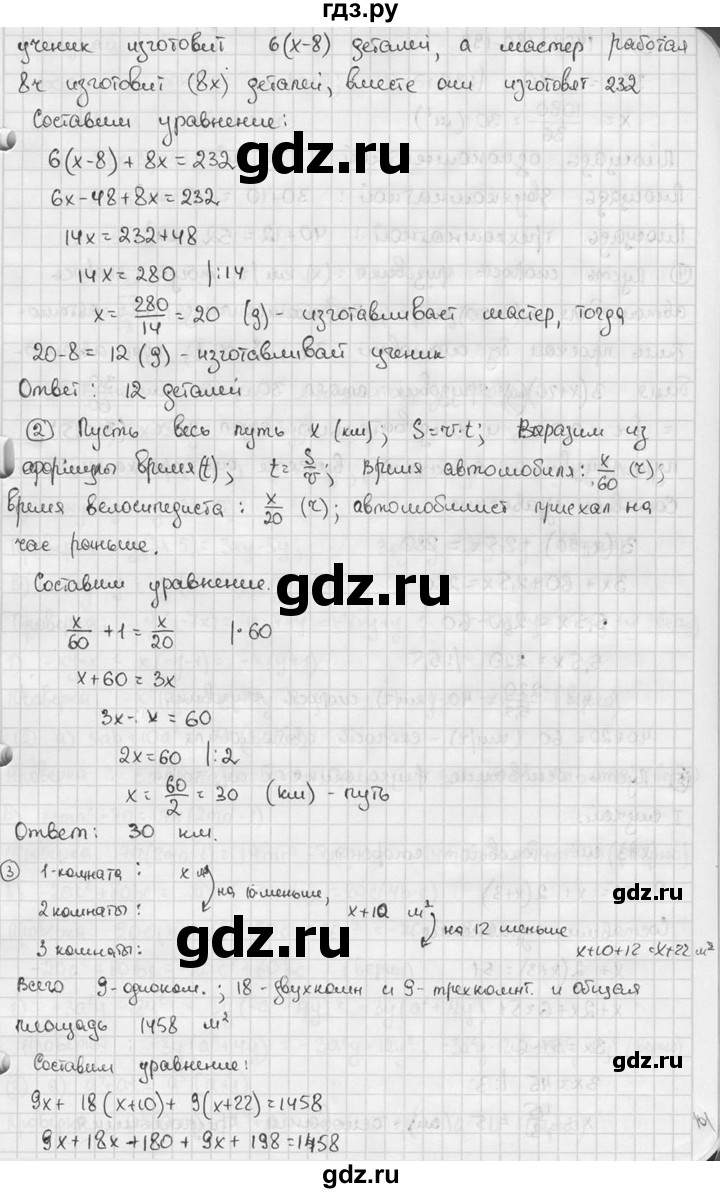 гдз.ру
ученик изготовит 6(x-8) деталей, а мастер работая
8ч изготовит (8x) деталей, вместе они изготовят 232
Составим уравнение:
6(x-8) + 8x = 232
6x-48+8x = 232
14x = 232+48
14x = 280 |:14
x = 280/14 = 20 (g) - изготавливает мастер, тогда
20-8 = 12 (g) - изготавливает ученик
Ответ: 12 деталей
② Пусть весь путь x (км); S=v·t; Выразим из
формулы время (t); t = S/v; время автомобиля: x/60 (ч);
время велосипедиста: x/20 (ч); автомобилист приехал на
час раньше.
Составим уравнение.
x/60 + 1 = x/20 |·60
x+60 = 3x
3x - x = 60
2x = 60 |:2
x = 60/2 = 30 (км) - путь
Ответ: 30 км.
③ 1-комната: x м²
на 10 меньше,
2 комнаты: x+10 м²
на 12 меньше
3 комнаты: x+10+12 = x+22 м²
Всего 9-одноком.; 18-двухкомн и 9-трехкомнт. и общая
площадь 1458 м²
Составим уравнение:
9x + 18(x+10) + 9(x+22) = 1458
9x + 18x + 180 + 9x + 198 = 1458
gdz.ru
gdz.ru
gdz.ru
gdz.ru
gdz.ru
gdz.ru